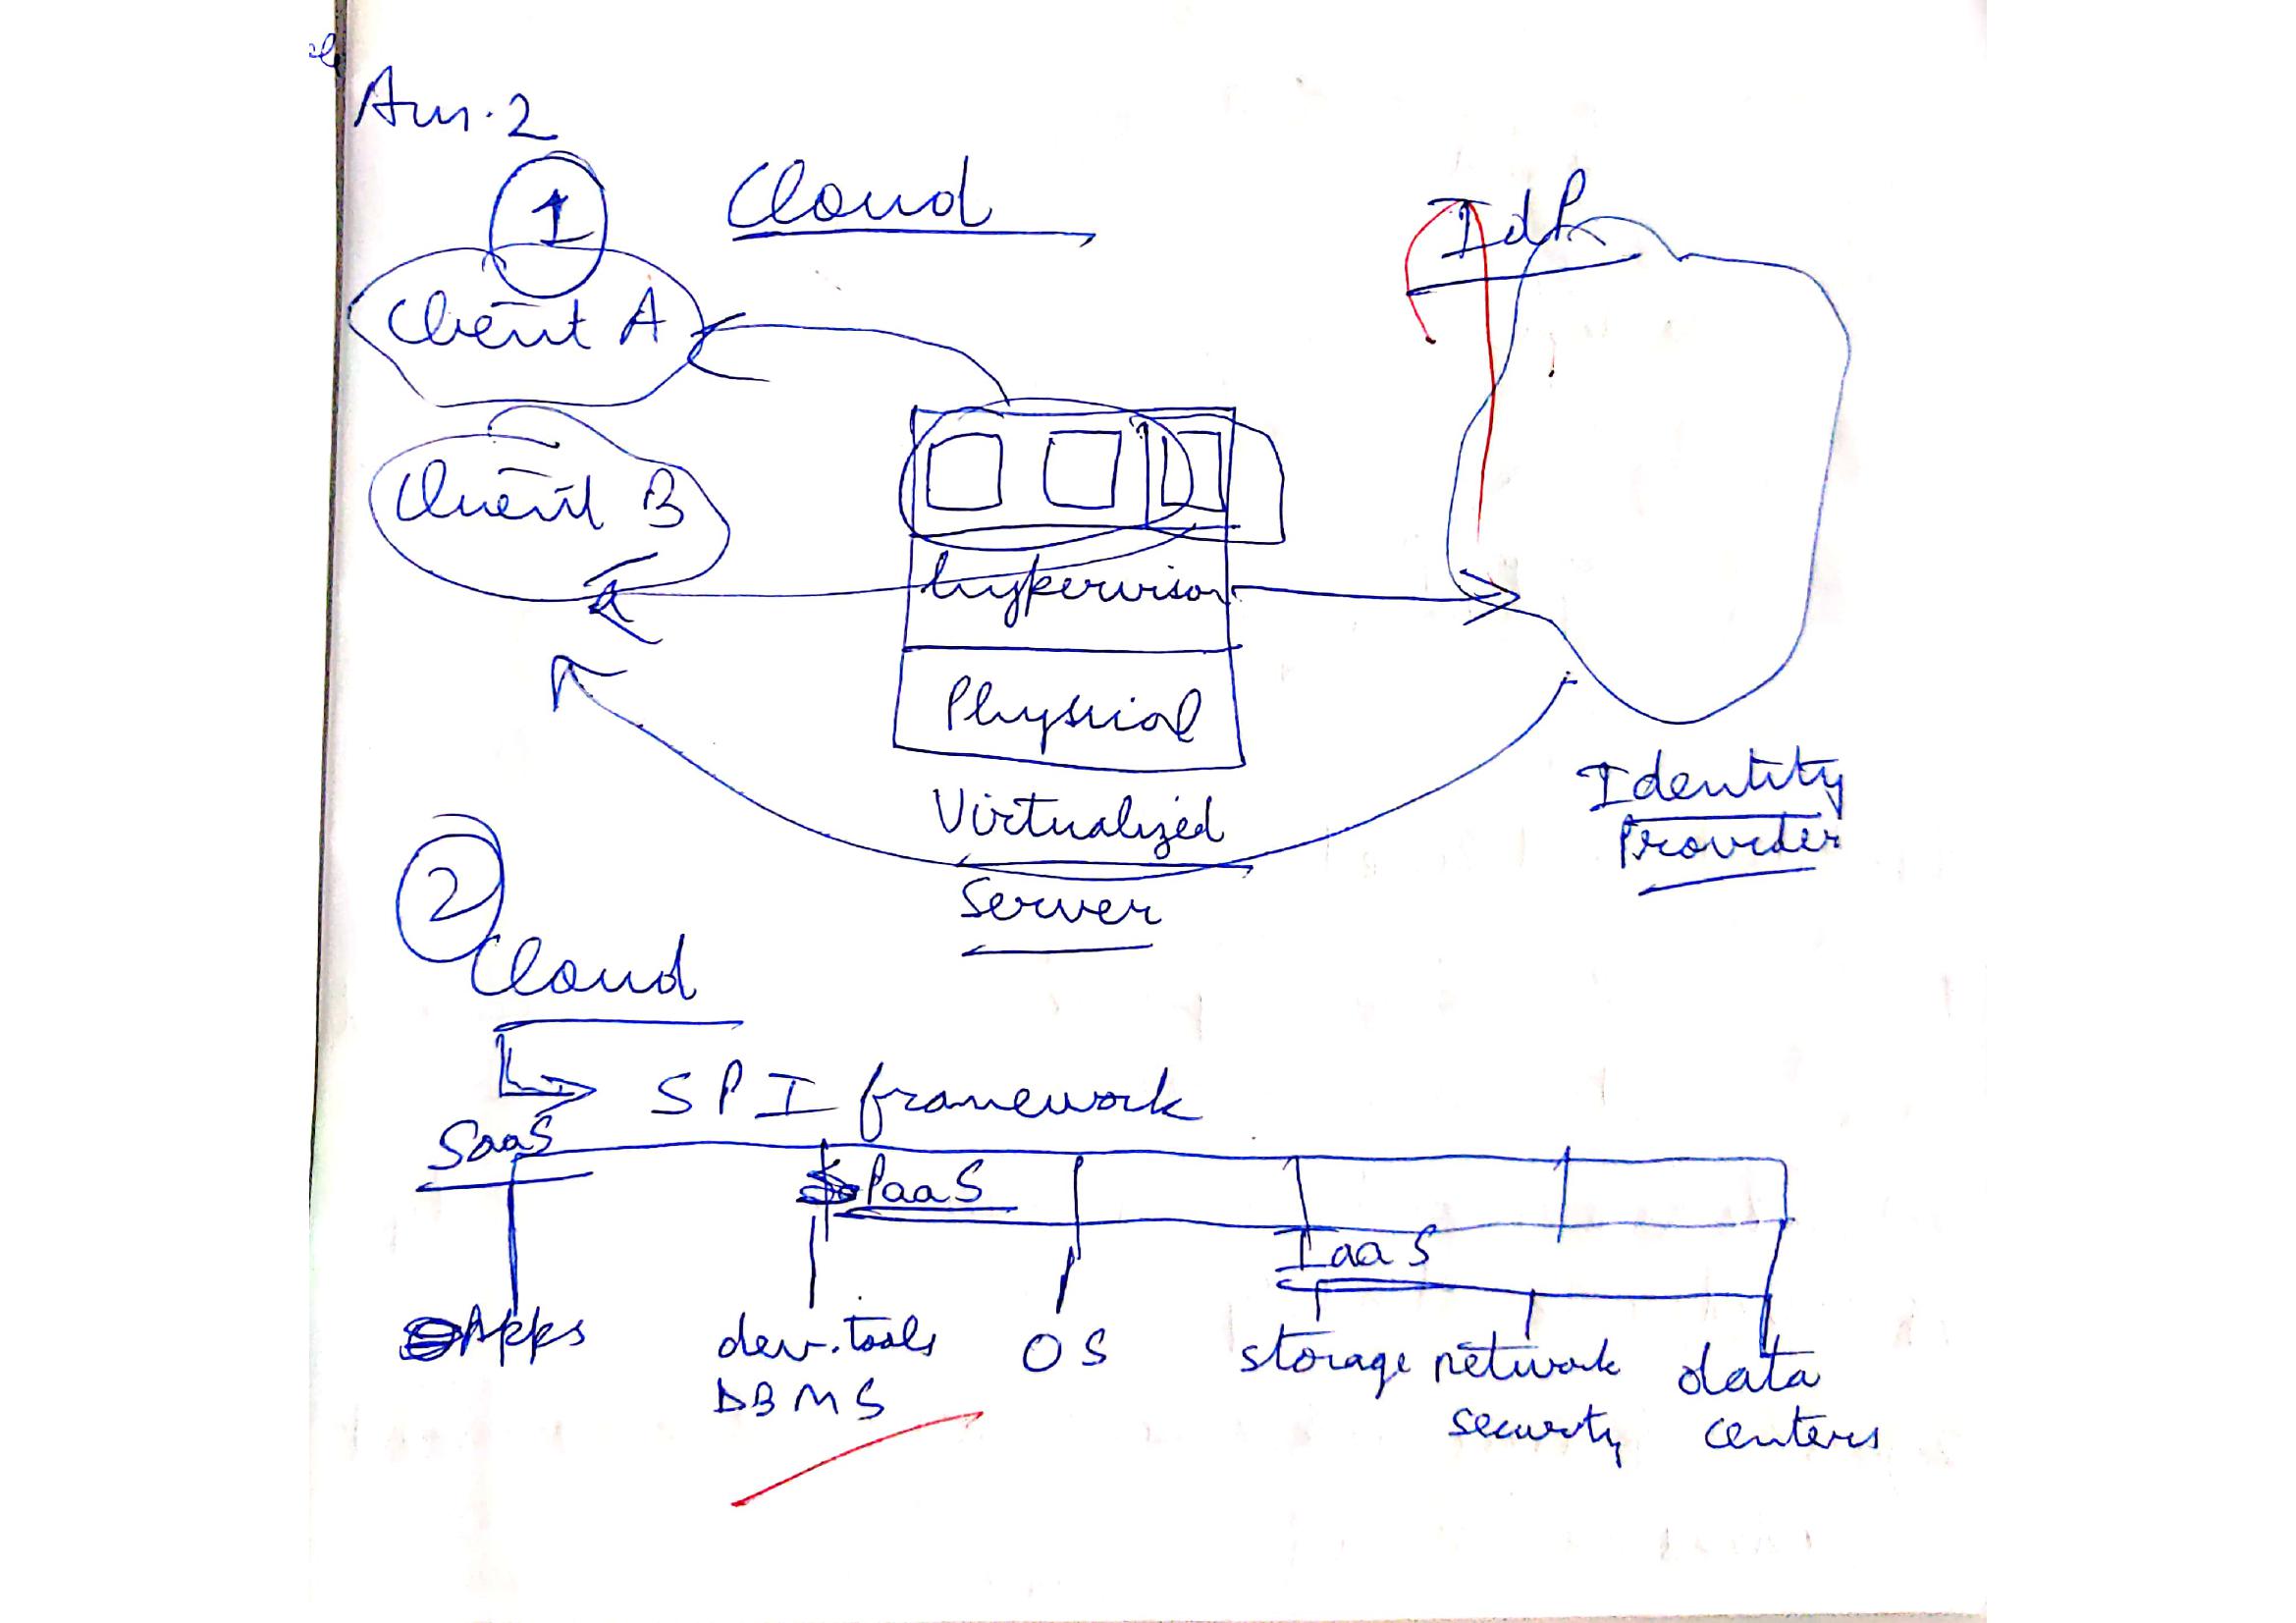 Ans. 2
1
Cloud
IdP
Client A
Client B
hypervisor
Physical
Virtualized
Server
Identity
Provider
2
Cloud
SPI framework
SaaS
PaaS
IaaS
Apps
dev. tools
DBMS
OS
storage
network
security
data
centers